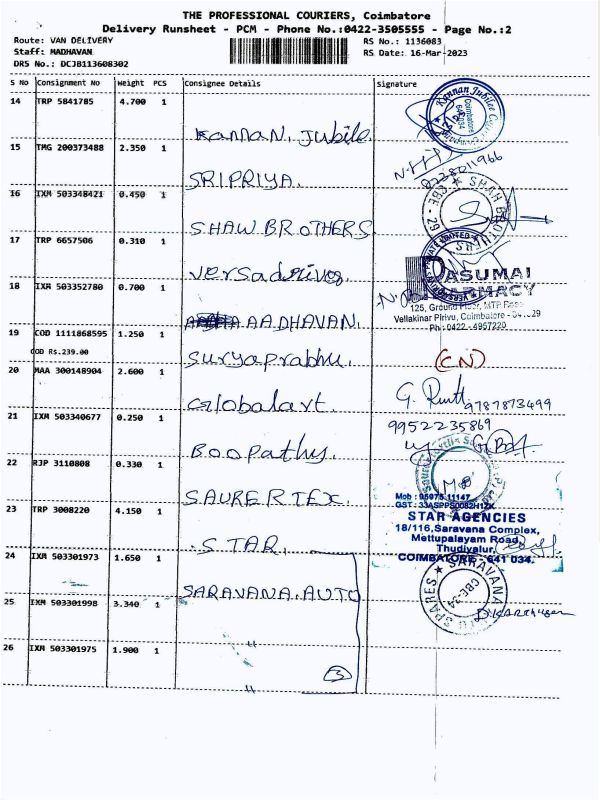 THE PROFESSIONAL COURIERS, Coimbatore
Delivery Runsheet - PCM - Phone No.:0422-3505555 - Page No.:2
Route: VAN DELIVERY
RS No.: 1136083
Staff: MADHAVAN
RS Date: 16-Mar-2023
DRS No.: DCJB113608302
S No Consignment No Weight PCS Consignee Details Signature
14 TRP 5841785 4.700 1 Kannan. Jubile.
Kannan Jubilee
Coimbatore
15 TMG 200373488 2.350 1 SRIPRIYA.
16 IXM 503348421 0.450 1 SHAW BROTHERS
17 TRP 6657506 0.310 1
PASUMAI
PHARMACY
125, Ground Floor, MTP Road
Vellakinar Pirivu, Coimbatore -
Ph: 0422 - 4957220
18 IXM 503352780 0.700 1 AADHAVAN.
19 COD 1111868595 1.250 1 Suryaprabhu. (CN)
COD Rs.239.00
20 MAA 300148904 2.600 1 Globalart.
9787873499
21 IXM 503340677 0.250 1 Boopathy.
9952235869
22 RJP 3110808 0.330 1 SAURERTEX.
23 TRP 3008220 4.150 1 STAR.
Mob : 95975 11147
STAR AGENCIES
18/116, Saravana Complex,
Mettupalayam Road,
Thudiyalur,
COIMBATORE - 641 034.
24 IXM 503301973 1.650 1 SARAVANA. AUTO
SARAVANA AUTO SPARES
CBE-34
25 IXM 503301998 3.340 1 "
26 IXM 503301975 1.900 1 "
3